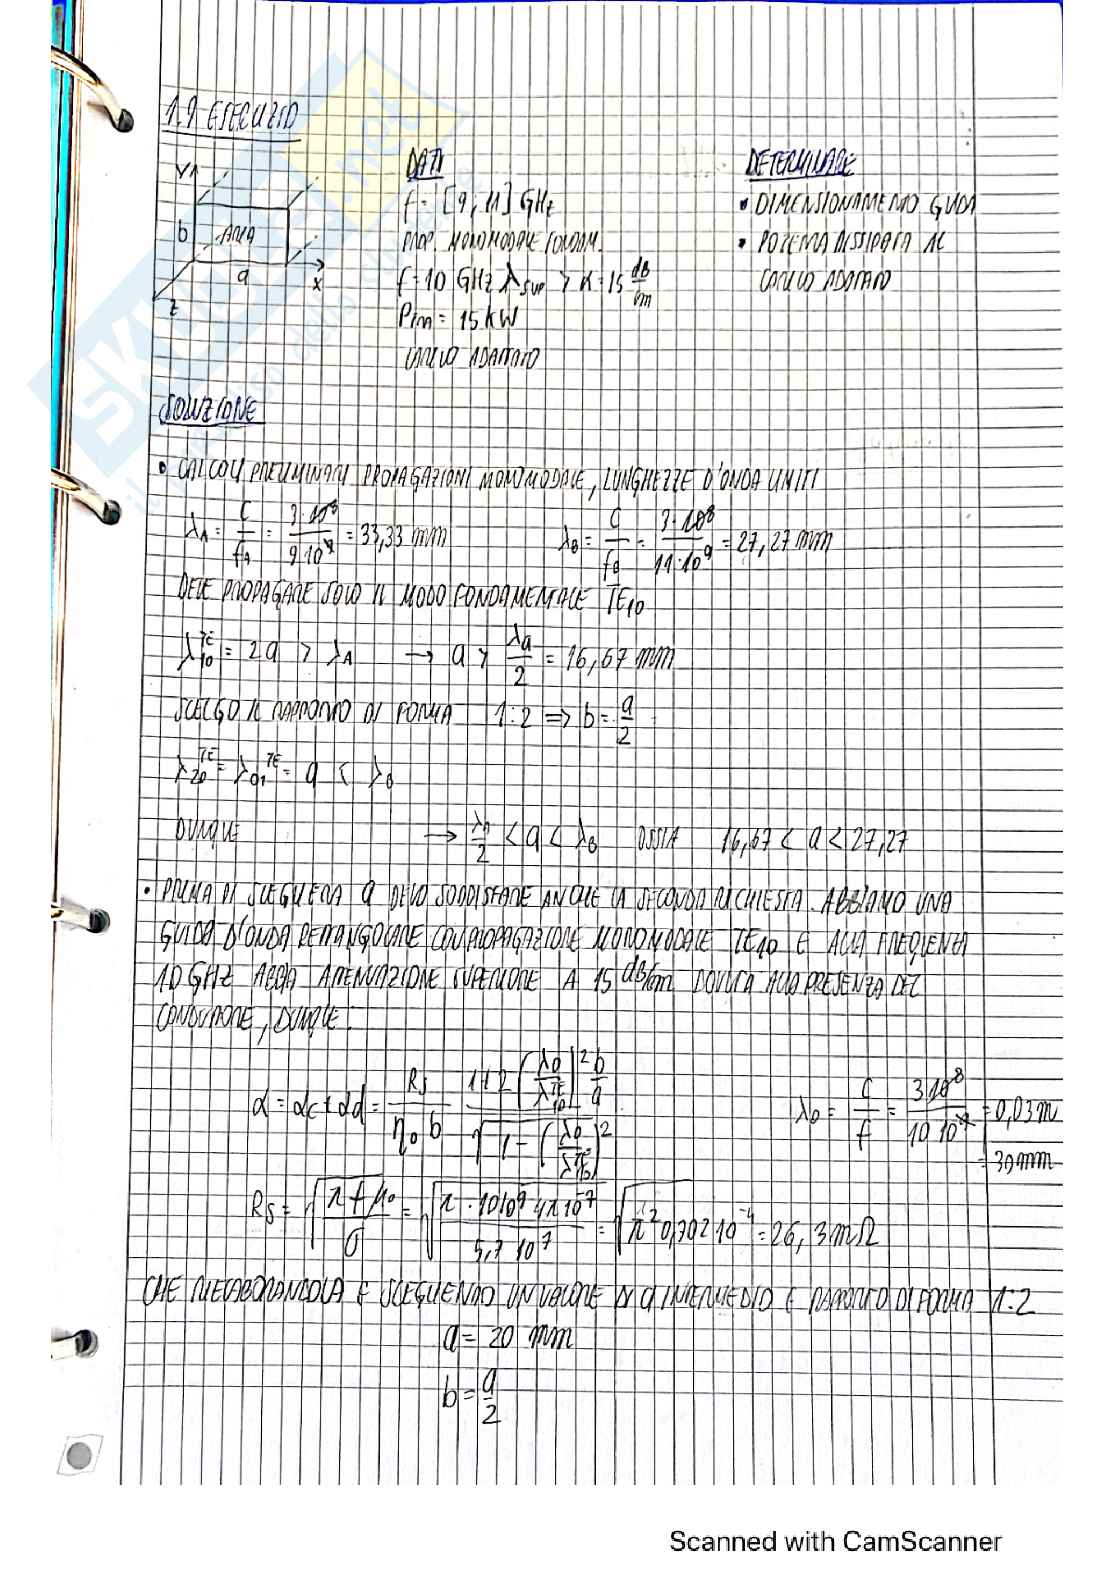 1.1 ESERCIZIO
DATI
DETERMINARE
y
f = [9, 11] GHz
• DIMENSIONAMENTO GUIDA
b ARIA
PROP. MONOMODALE FONDAM.
• POTENZA DISSIPATA
a
x
f = 10 GHz λsup > α = 15 dB/m
CARICO ADATTATO
z
Pin = 15 kW
CARICO ADATTATO
SOLUZIONE
• CALCOLI PRELIMINARI PROPAGAZIONI MONOMODALE, LUNGHEZZE D'ONDA LIMITI
λA = c/fA = 3·10⁸/9·10⁹ = 33,33 mm
λB = c/fB = 3·10⁸/11·10⁹ = 27,27 mm
DEVE PROPAGARE SOLO IL MODO FONDAMENTALE TE10
λ10^TE = 2a > λA → a > λa/2 = 16,67 mm
SCELGO IL RAPPORTO DI FORMA 1:2 ⇒ b = a/2
λ20^TE = λ01^TE = a < λB
DUNQUE → λA/2 < a < λB OSSIA 16,67 < a < 27,27
• PRIMA DI SCEGLIERE a DEVO SODDISFARE ANCHE LA SECONDA RICHIESTA. ABBIAMO UNA
GUIDA D'ONDA RETTANGOLARE CON PROPAGAZIONE MONOMODALE TE10 E ALLA FREQUENZA
10 GHz ABBIA ATTENUAZIONE SUPERIORE A 15 dB/m DOVUTA ALLA PRESENZA DEL
CONDUTTORE, DUNQUE:
α = αc + αd = Rs/(η0 b) · (1+2(λ0/λ10^TE)² b/a)/√(1-(λ0/λ10^TE)²)
λ0 = c/f = 3·10⁸/10·10⁹ = 0,03 m
= 30 mm
Rs = √(π f μ0/σ) = √(π·10·10⁹·4π·10⁻⁷/5,7·10⁷) = √(π² 0,702·10⁻⁴) = 26,3 mΩ
CHE RIELABORANDOLA E SCEGLIENDO UN VALORE DI a INTERMEDIO E RAPPORTO DI FORMA 1:2
a = 20 mm
b = a/2
Scanned with CamScanner